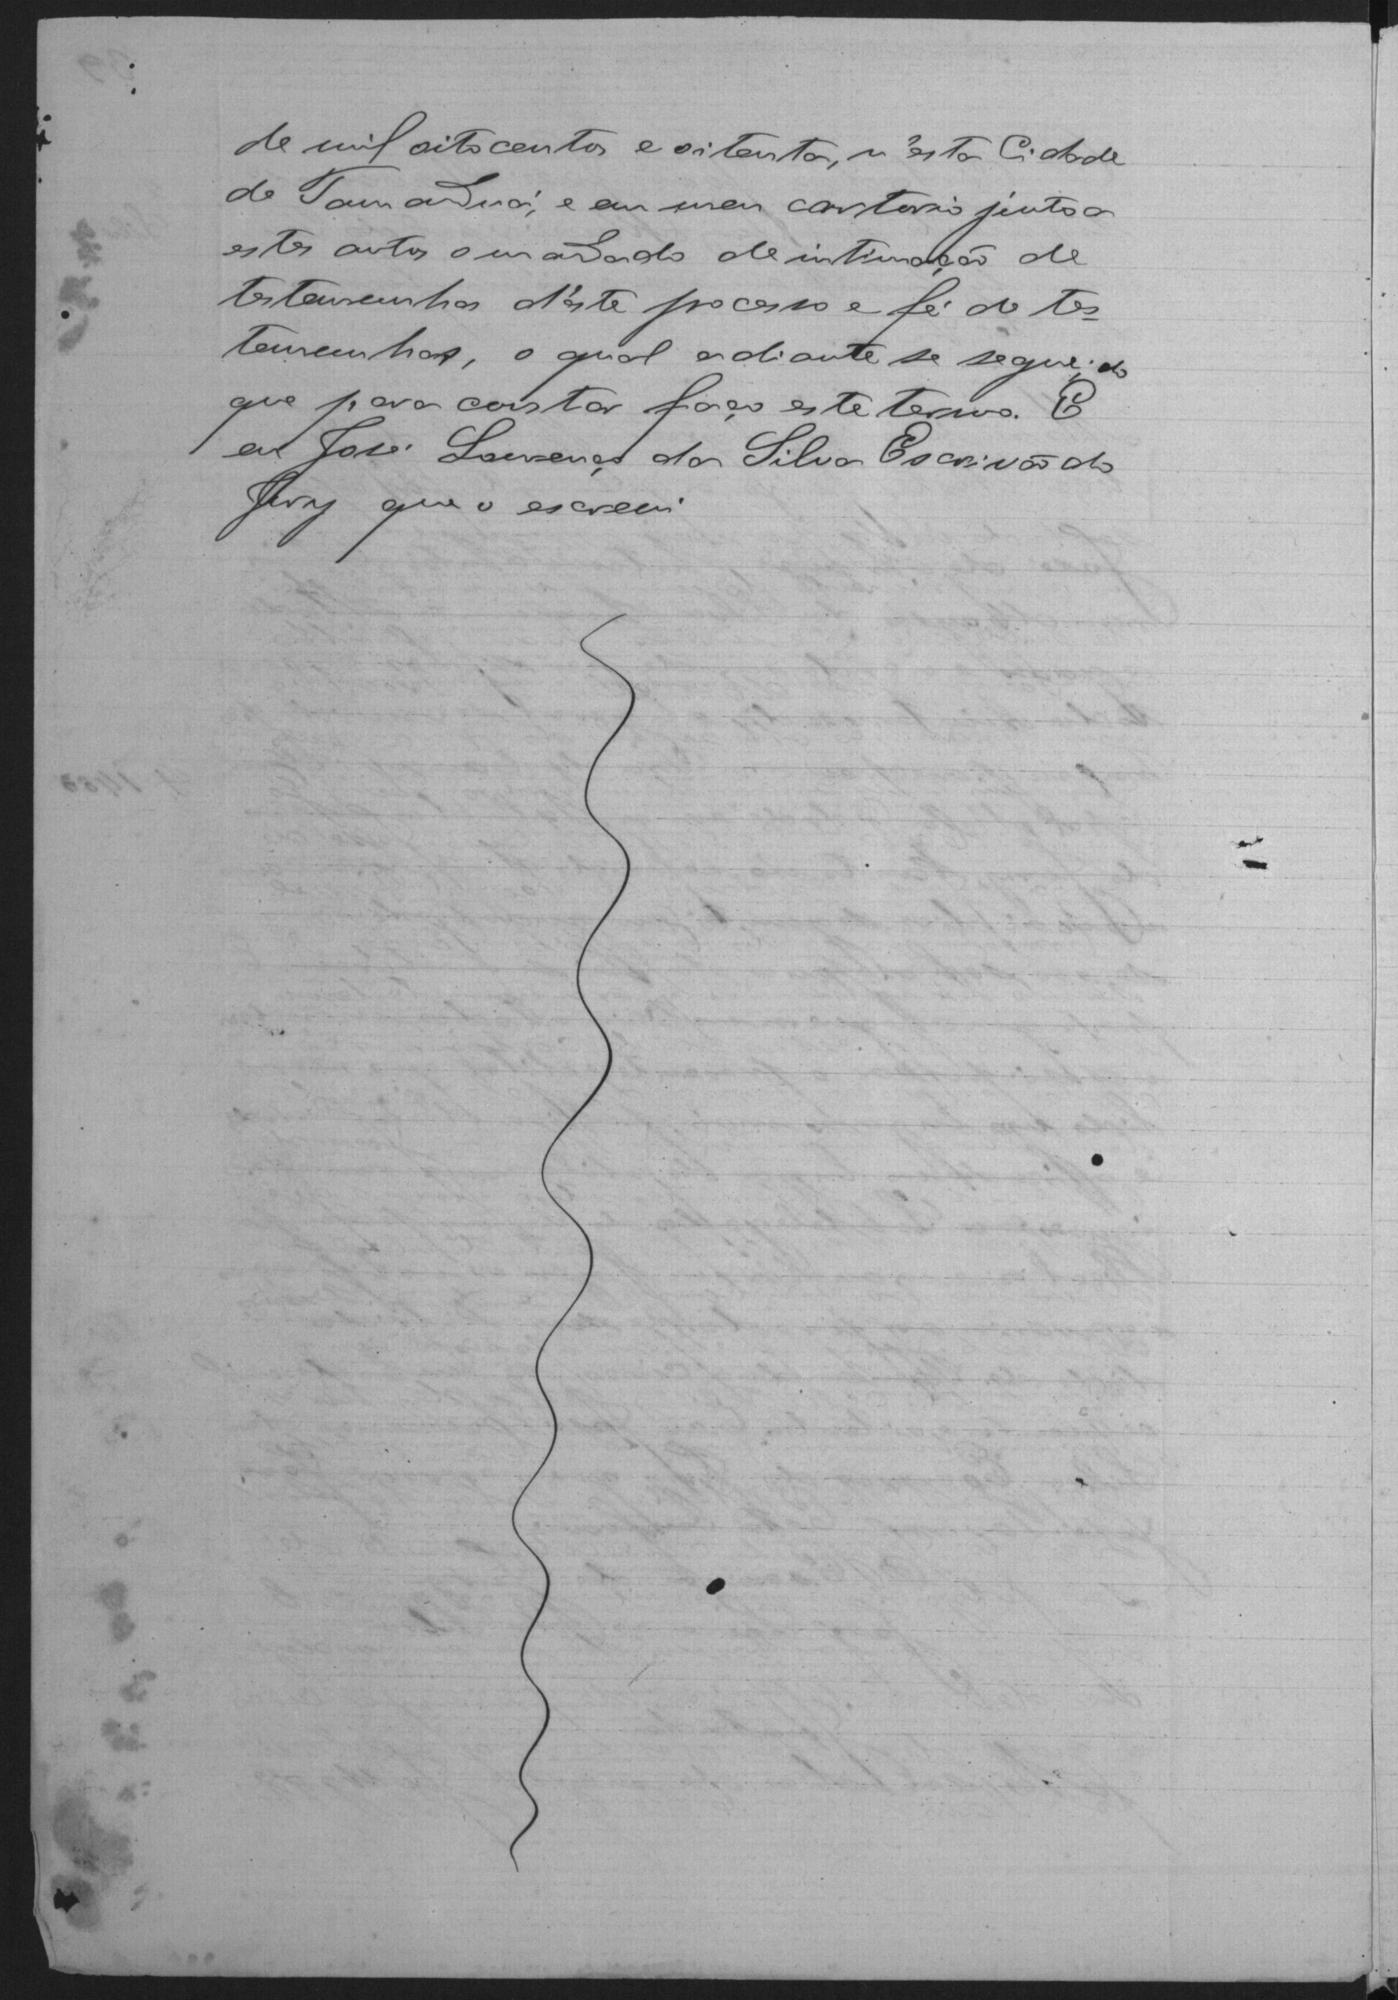 de mil oitocentos e oitenta, n'esta Cidade
de Tamanduá, e em meu cartorio junto a
estes autos o mandado de intimação de
testemunhas d'este processo e fé de tes=
temunhas, o qual adiante se segue; do
que para constar faço este termo. E
eu José Lourenço da Silva Escrivão do
Jury que o escrevi